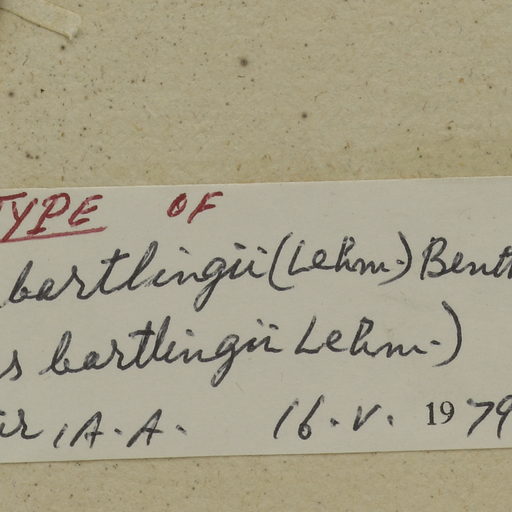 TYPE OF
bartlingii (Lehm.) Benth
s bartlingii Lehm.)
ir, A.A. 16.V. 1979